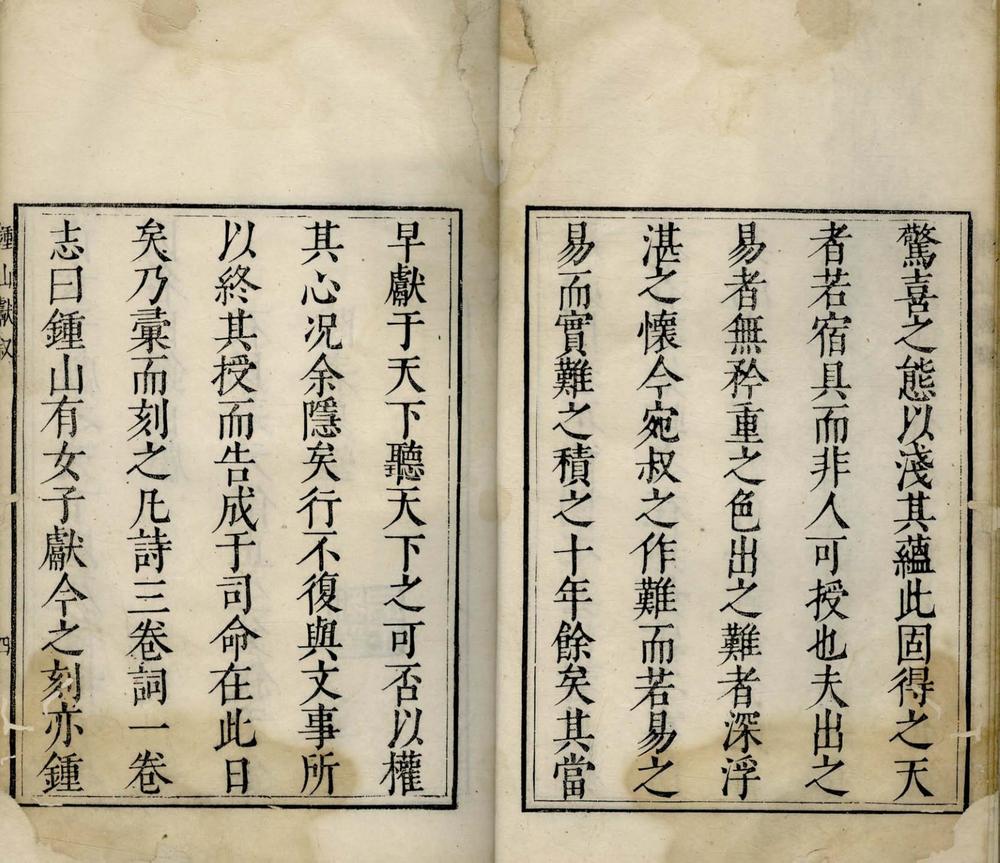 驚喜之態以淺其蘊此固得之天
者若宿具而非人可授也夫出之
易者無矜重之色出之難者深浮
湛之懷今宛叔之作難而若易之
易而實難之積之十年餘矣其當
早獻于天下聽天下之可否以權
其心况余隱矣行不復與文事所
以終其授而告成于司命在此日
矣乃彙而刻之凡詩三卷詞一卷
志曰鍾山有女子獻今之刻亦鍾
鍾山獻叙
四